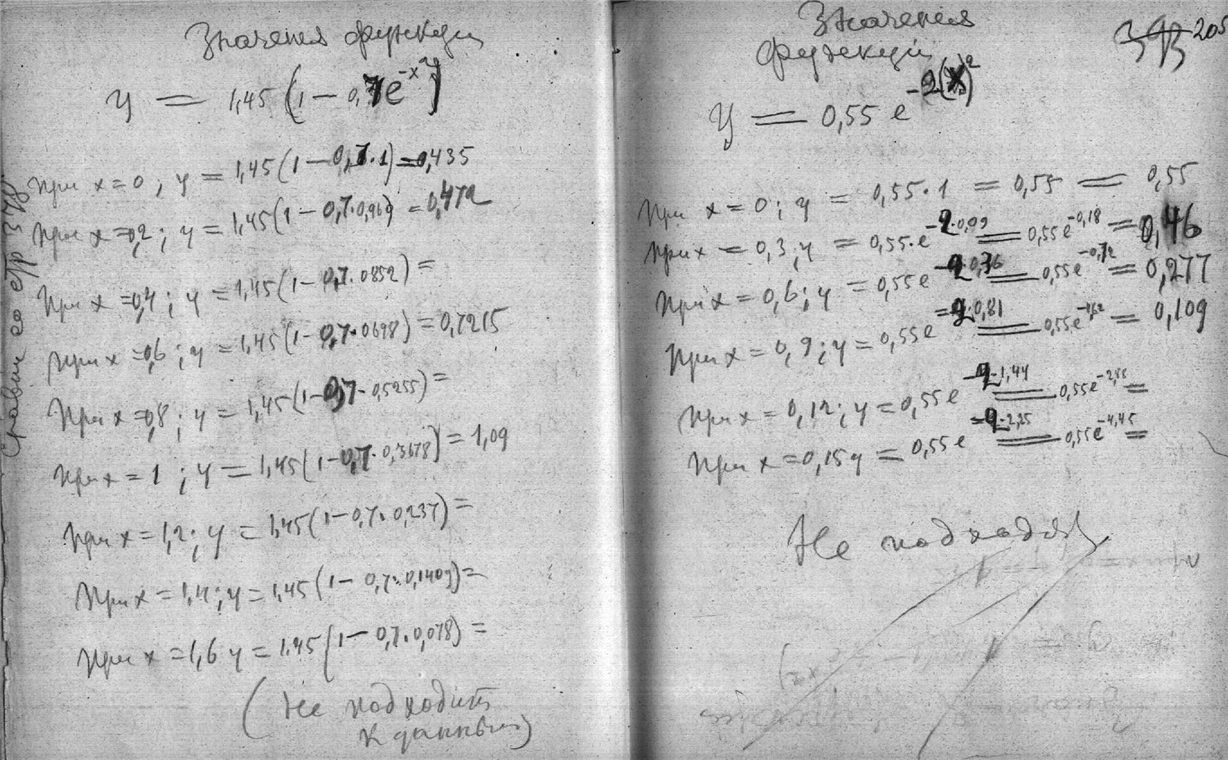 Значения функции
y = 1,45 (1 – 0,7e^{-x²})
При x = 0 ; y = 1,45 (1 – 0,7·1) = 0,435
При x = 0,2 ; y = 1,45 (1 – 0,7·0,969) = 0,472
При x = 0,4 ; y = 1,45 (1 – 0,7·0852) =
При x = 0,6 ; y = 1,45 (1 – 0,7·0698) = 0,7215
При x = 0,8 ; y = 1,45 (1 – 0,7·0,5255) =
При x = 1 ; y = 1,45 (1 – 0,7·0,3678) = 1,09
При x = 1,2 ; y = 1,45 (1 – 0,7·0,237) =
При x = 1,4 ; y = 1,45 (1 – 0,7·0,1409) =
При x = 1,6 y = 1.45 (1 – 0,7·0,078) =
(Не подходит
к данным)
Сравни со стр
205
Значения
функции
y = 0,55 e
При x = 0 ; y = 0,55·1 = 0,55 = 0,55
При x = 0,3 ; y = 0,55·e^{-2·0,09} = 0,55e^{-0,18} = 0,46
При x = 0,6 ; y = 0,55e^{-2·0,36} = 0,55e^{-0,72} = 0,277
При x = 0,9 ; y = 0,55e^{-2·0,81} = 0,55e^{-1,62} = 0,109
При x = 0,12 ; y = 0,55e^{-2·1,44} = 0,55e =
При x = 0,15 y = 0,55e^{-2·2,25} = 0,55e^{-4,45} =
Не подходят